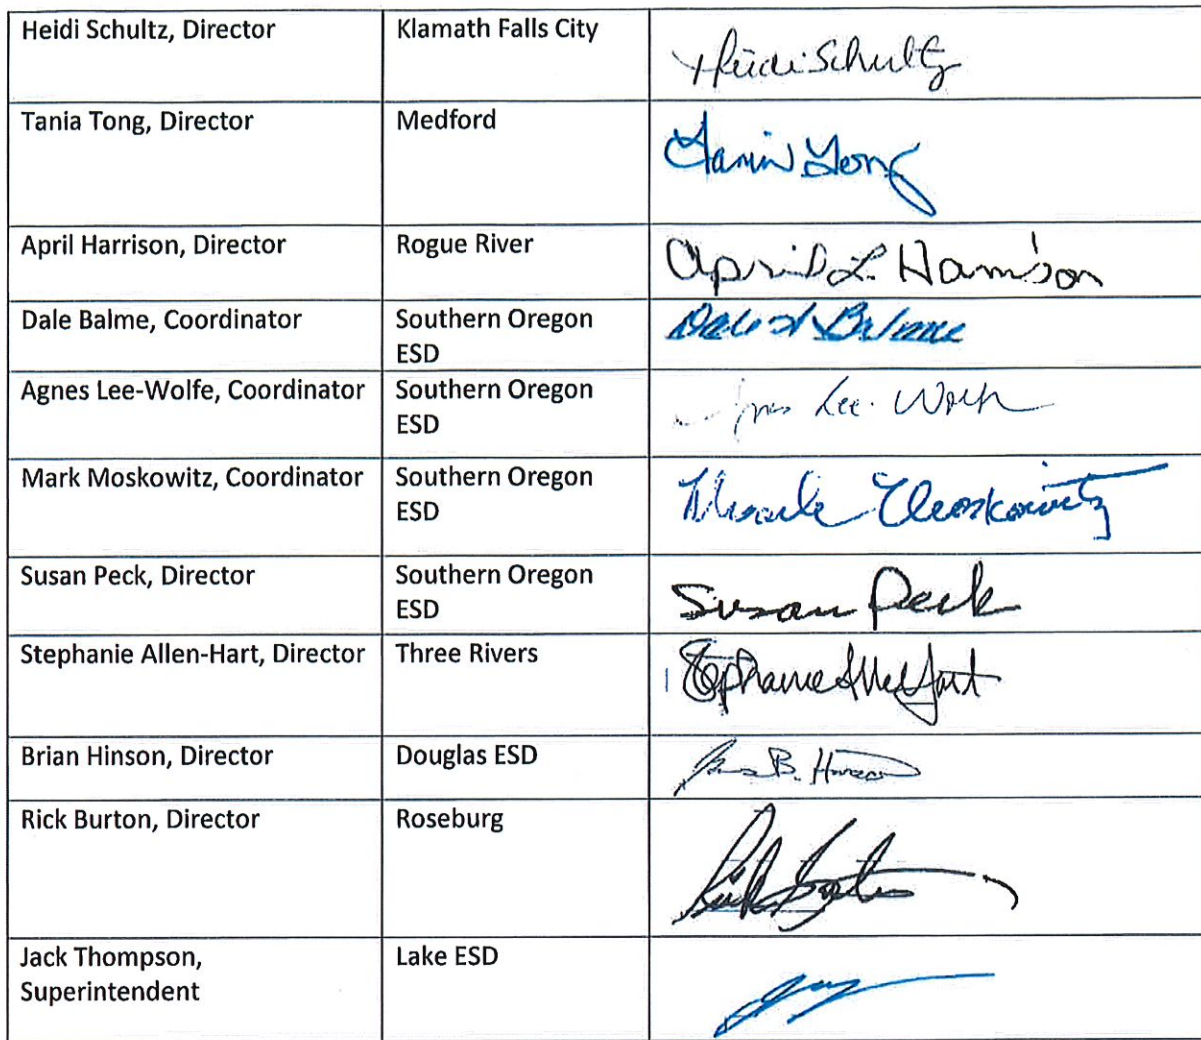 Heidi Schultz, Director Klamath Falls City Heidi Schultz
Tania Tong, Director Medford Tania Tong
April Harrison, Director Rogue River April L. Harrison
Dale Balme, Coordinator Southern Oregon Dale Balme
ESD
Agnes Lee-Wolfe, Coordinator Southern Oregon Agnes Lee-Wolfe
ESD
Mark Moskowitz, Coordinator Southern Oregon Mark Moskowitz
ESD
Susan Peck, Director Southern Oregon Susan Peck
ESD
Stephanie Allen-Hart, Director Three Rivers Stephanie Allen-Hart
Brian Hinson, Director Douglas ESD B. Hinson
Rick Burton, Director Roseburg Rick Burton
Jack Thompson, Lake ESD
Superintendent